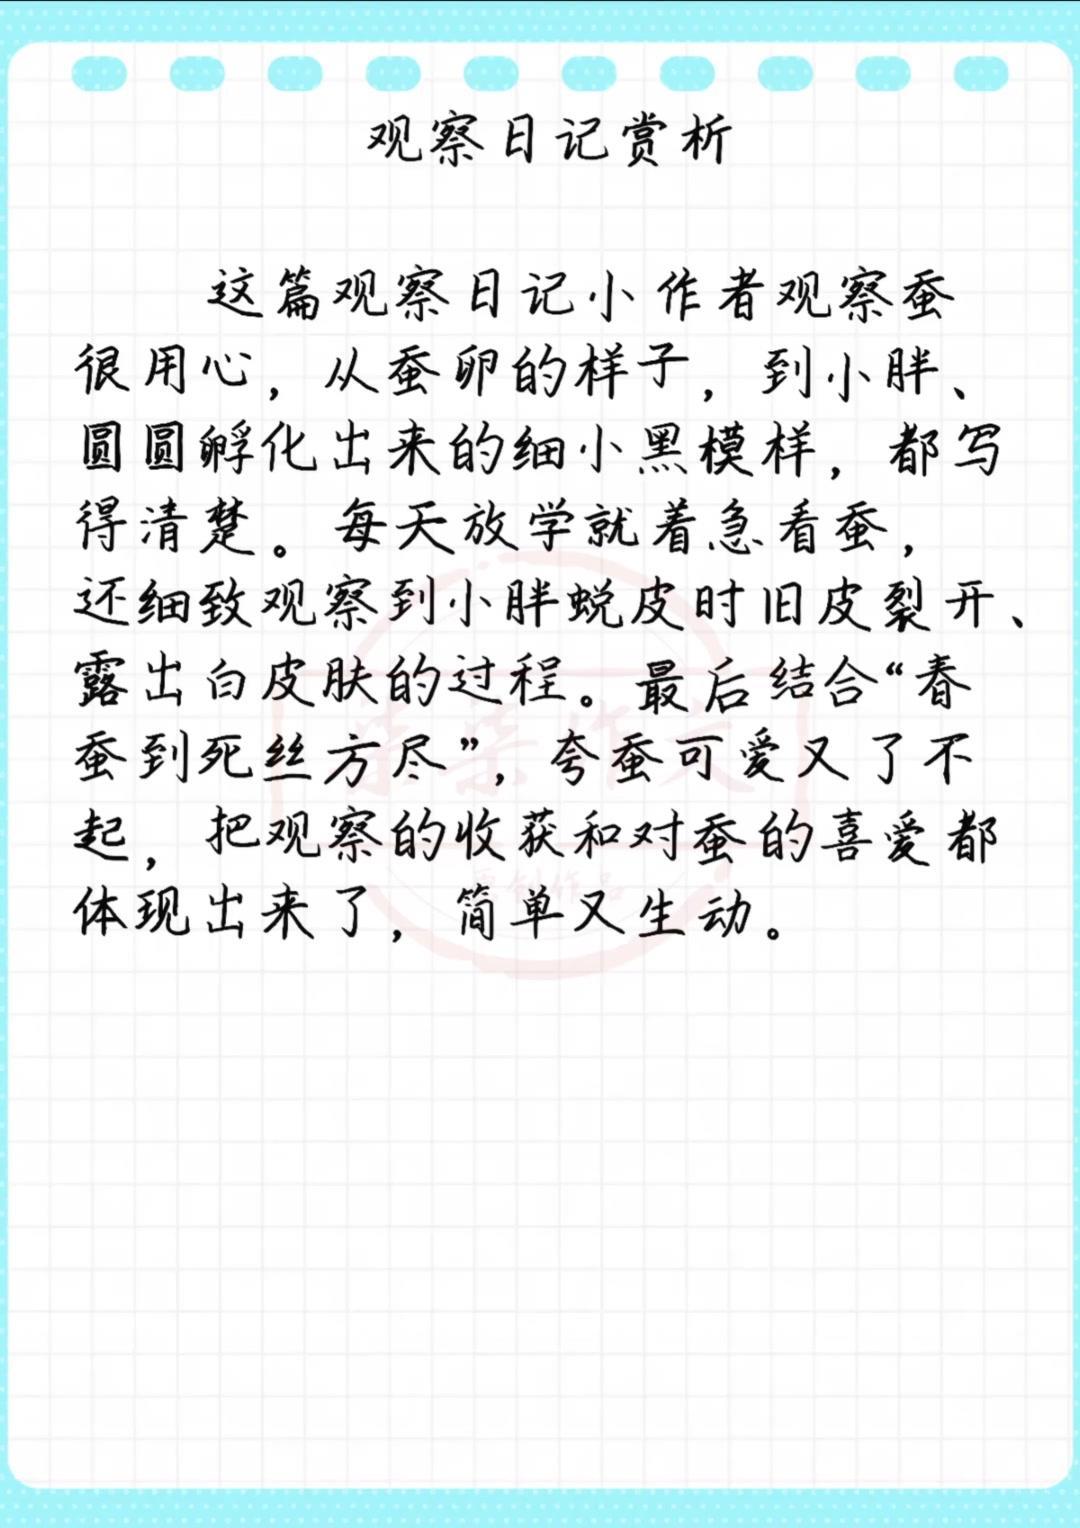 观察日记赏析
这篇观察日记小作者观察蚕
很用心，从蚕卵的样子，到小胖、
圆圆孵化出来的细小黑模样，都写
得清楚。每天放学就着急看蚕，
还细致观察到小胖蜕皮时旧皮裂开、
露出白皮肤的过程。最后结合“春
蚕到死丝方尽”，夸蚕可爱又了不
起，把观察的收获和对蚕的喜爱都
体现出来了，简单又生动。
原创作品